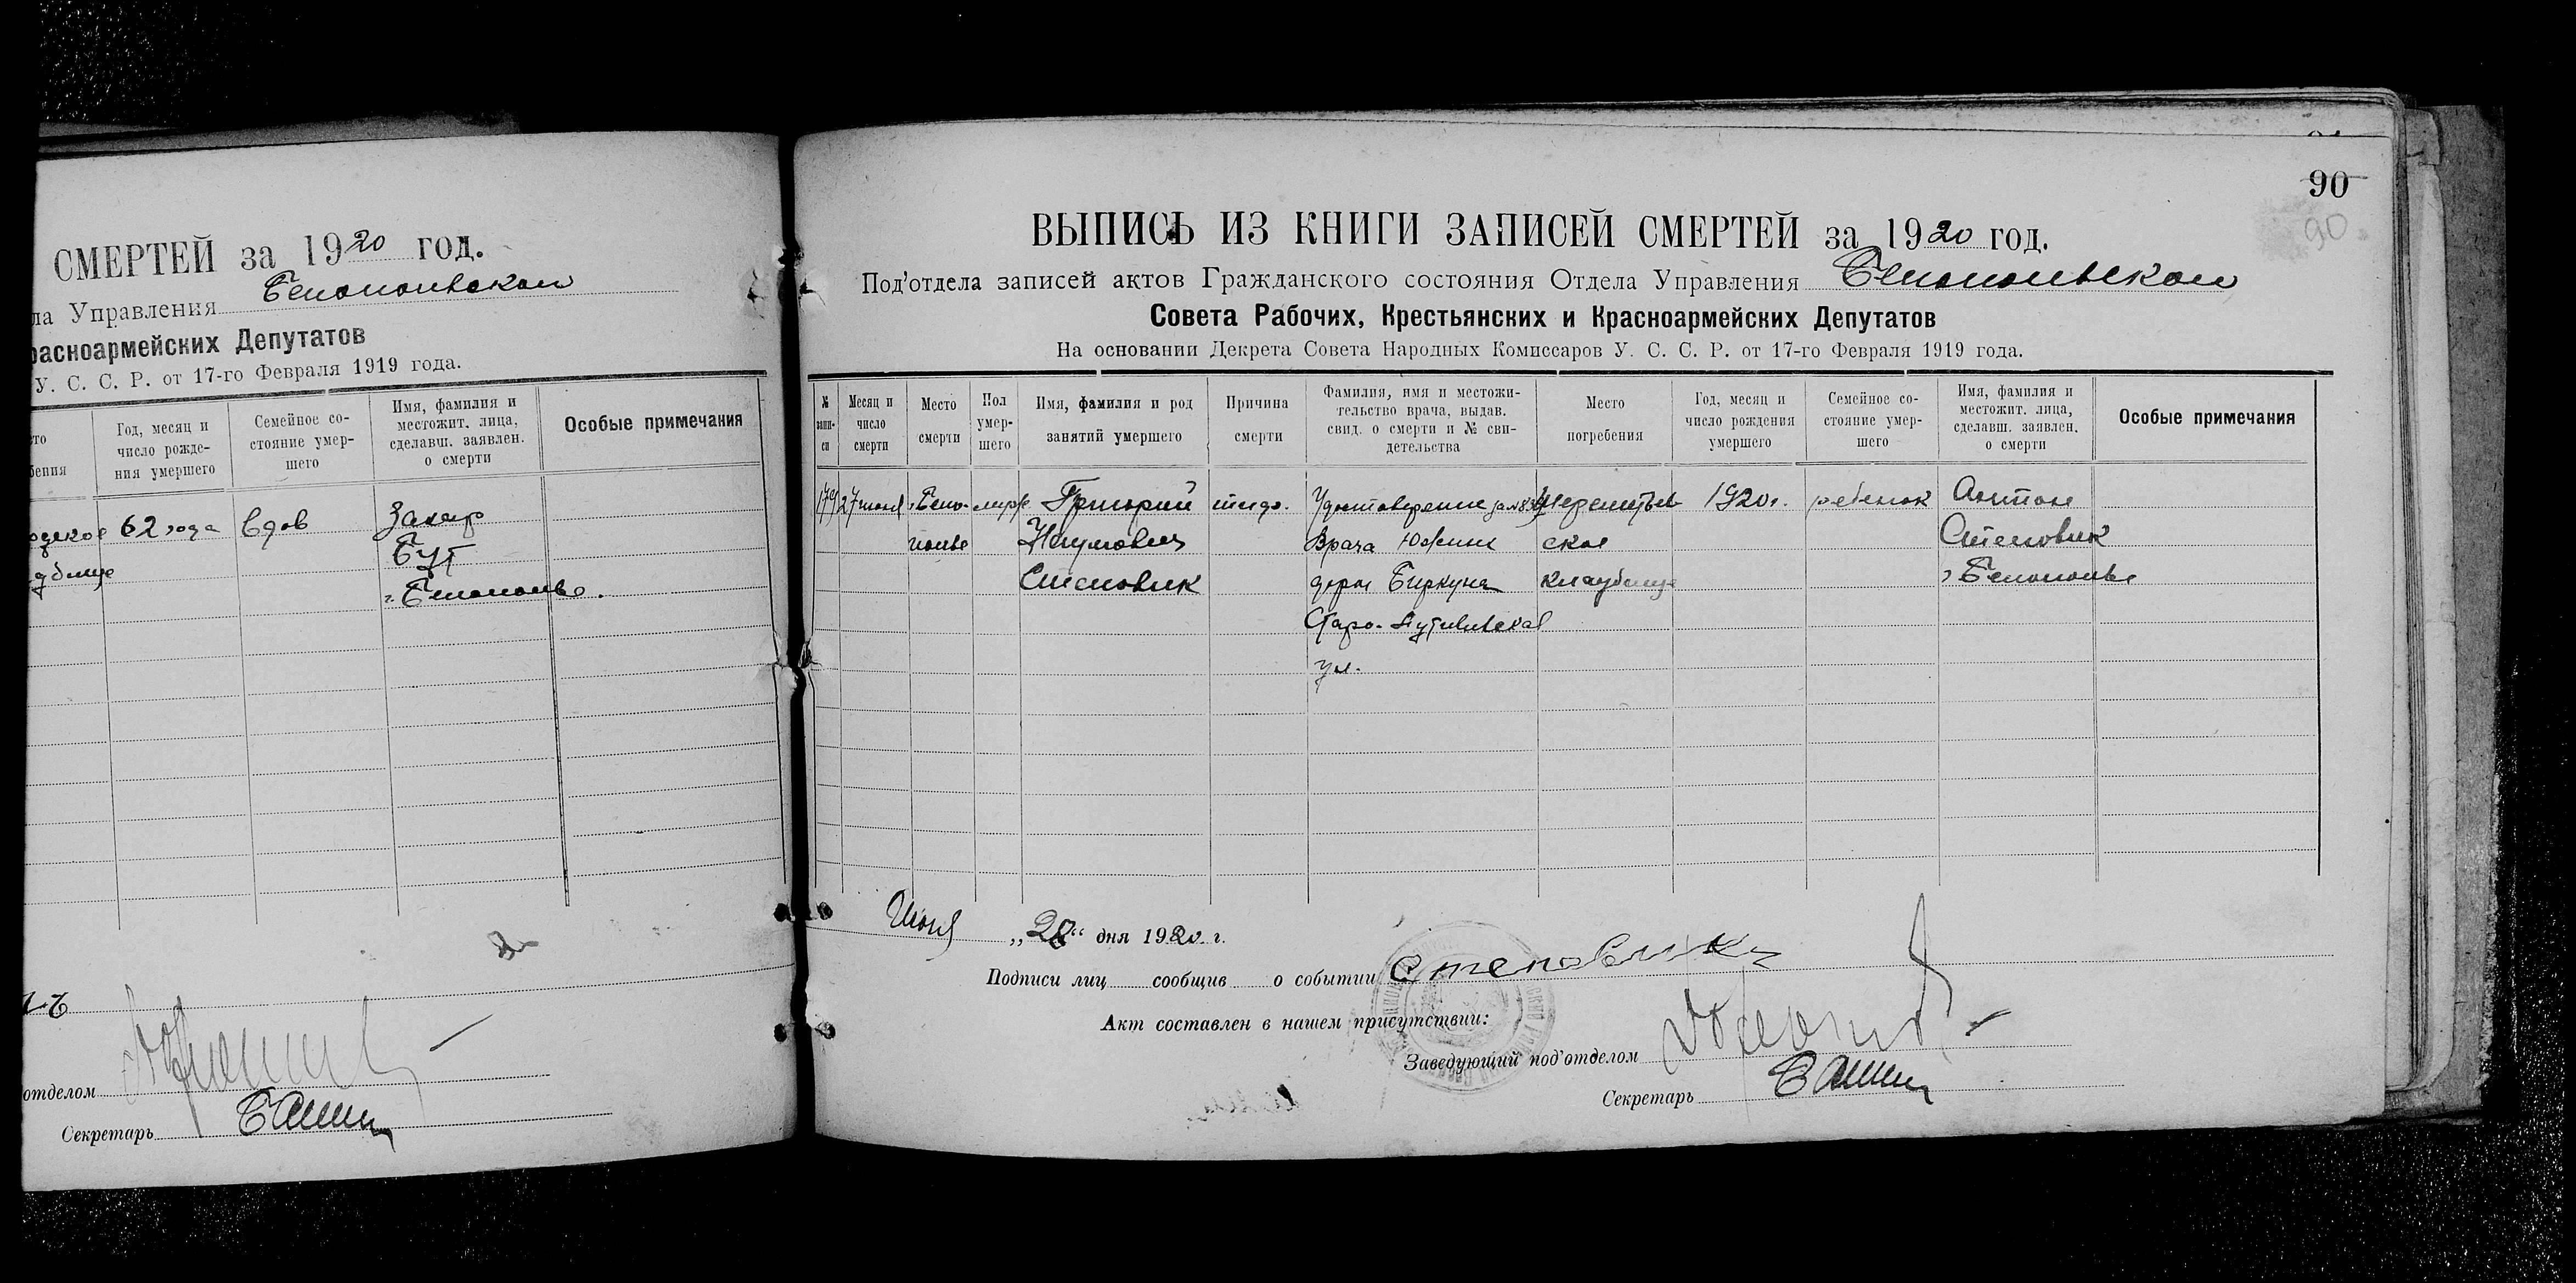 СМЕРТЕЙ за 1920 год.
ла Управления Белопольском
расноармейских Депутатов
У. С. С. Р. от 17-го Февраля 1919 года.
Год, месяц и число рожде-ния умершего
Семейное со-стояние умер-шего
Имя, фамилия и местожит. лица, сделавш. заявлен. о смерти
Особые примечания
62 года
вдов
Захар
Бут
г. Белополье.
отделом
Секретарь
90
90
ВЫПИСЬ ИЗ КНИГИ ЗАПИСЕЙ СМЕРТЕЙ за 1920 год.
Под'отдела записей актов Гражданского состояния Отдела Управления Белопольском
Совета Рабочих, Крестьянских и Красноармейских Депутатов
На основании Декрета Совета Народных Комиссаров У. С. С. Р. от 17-го Февраля 1919 года.
№ запи-си
Месяц и число смерти
Место смерти
Пол умер-шего
Имя, фамилия и род занятий умершего
Причина смерти
Фамилия, имя и местожи-тельство врача, выдав. свид. о смерти и № сви-детельства
Место погребения
Год, месяц и число рождения умершего
Семейное со-стояние умер-шего
Имя, фамилия и местожит. лица, сделавш. заявлен. о смерти
Особые примечания
179 27 июня г. Бело- Григорий Удостоверение за № 1920 г. ребенок Антон
полье Наумович Врача ское Степовик
Степовик Биркуна кладбище г. Белополье
Старо-Путивльская
ул.
Июня „28“ дня 1920 г.
Подписи лиц сообщив о событии Степовик
Акт составлен в нашем присутствии:
Заведующий под'отделом
Секретарь